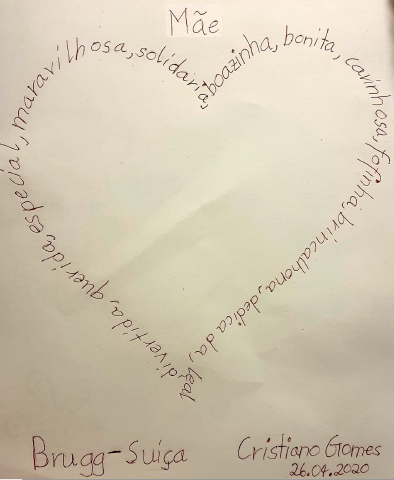 Mãe
boazinha, bonita, carinhosa, fofinha, brincalhona, dedicada, legal, divertida, querida, especial, maravilhosa, solidária,
Brugg-Suiça
Cristiano Gomes
26.04.2020